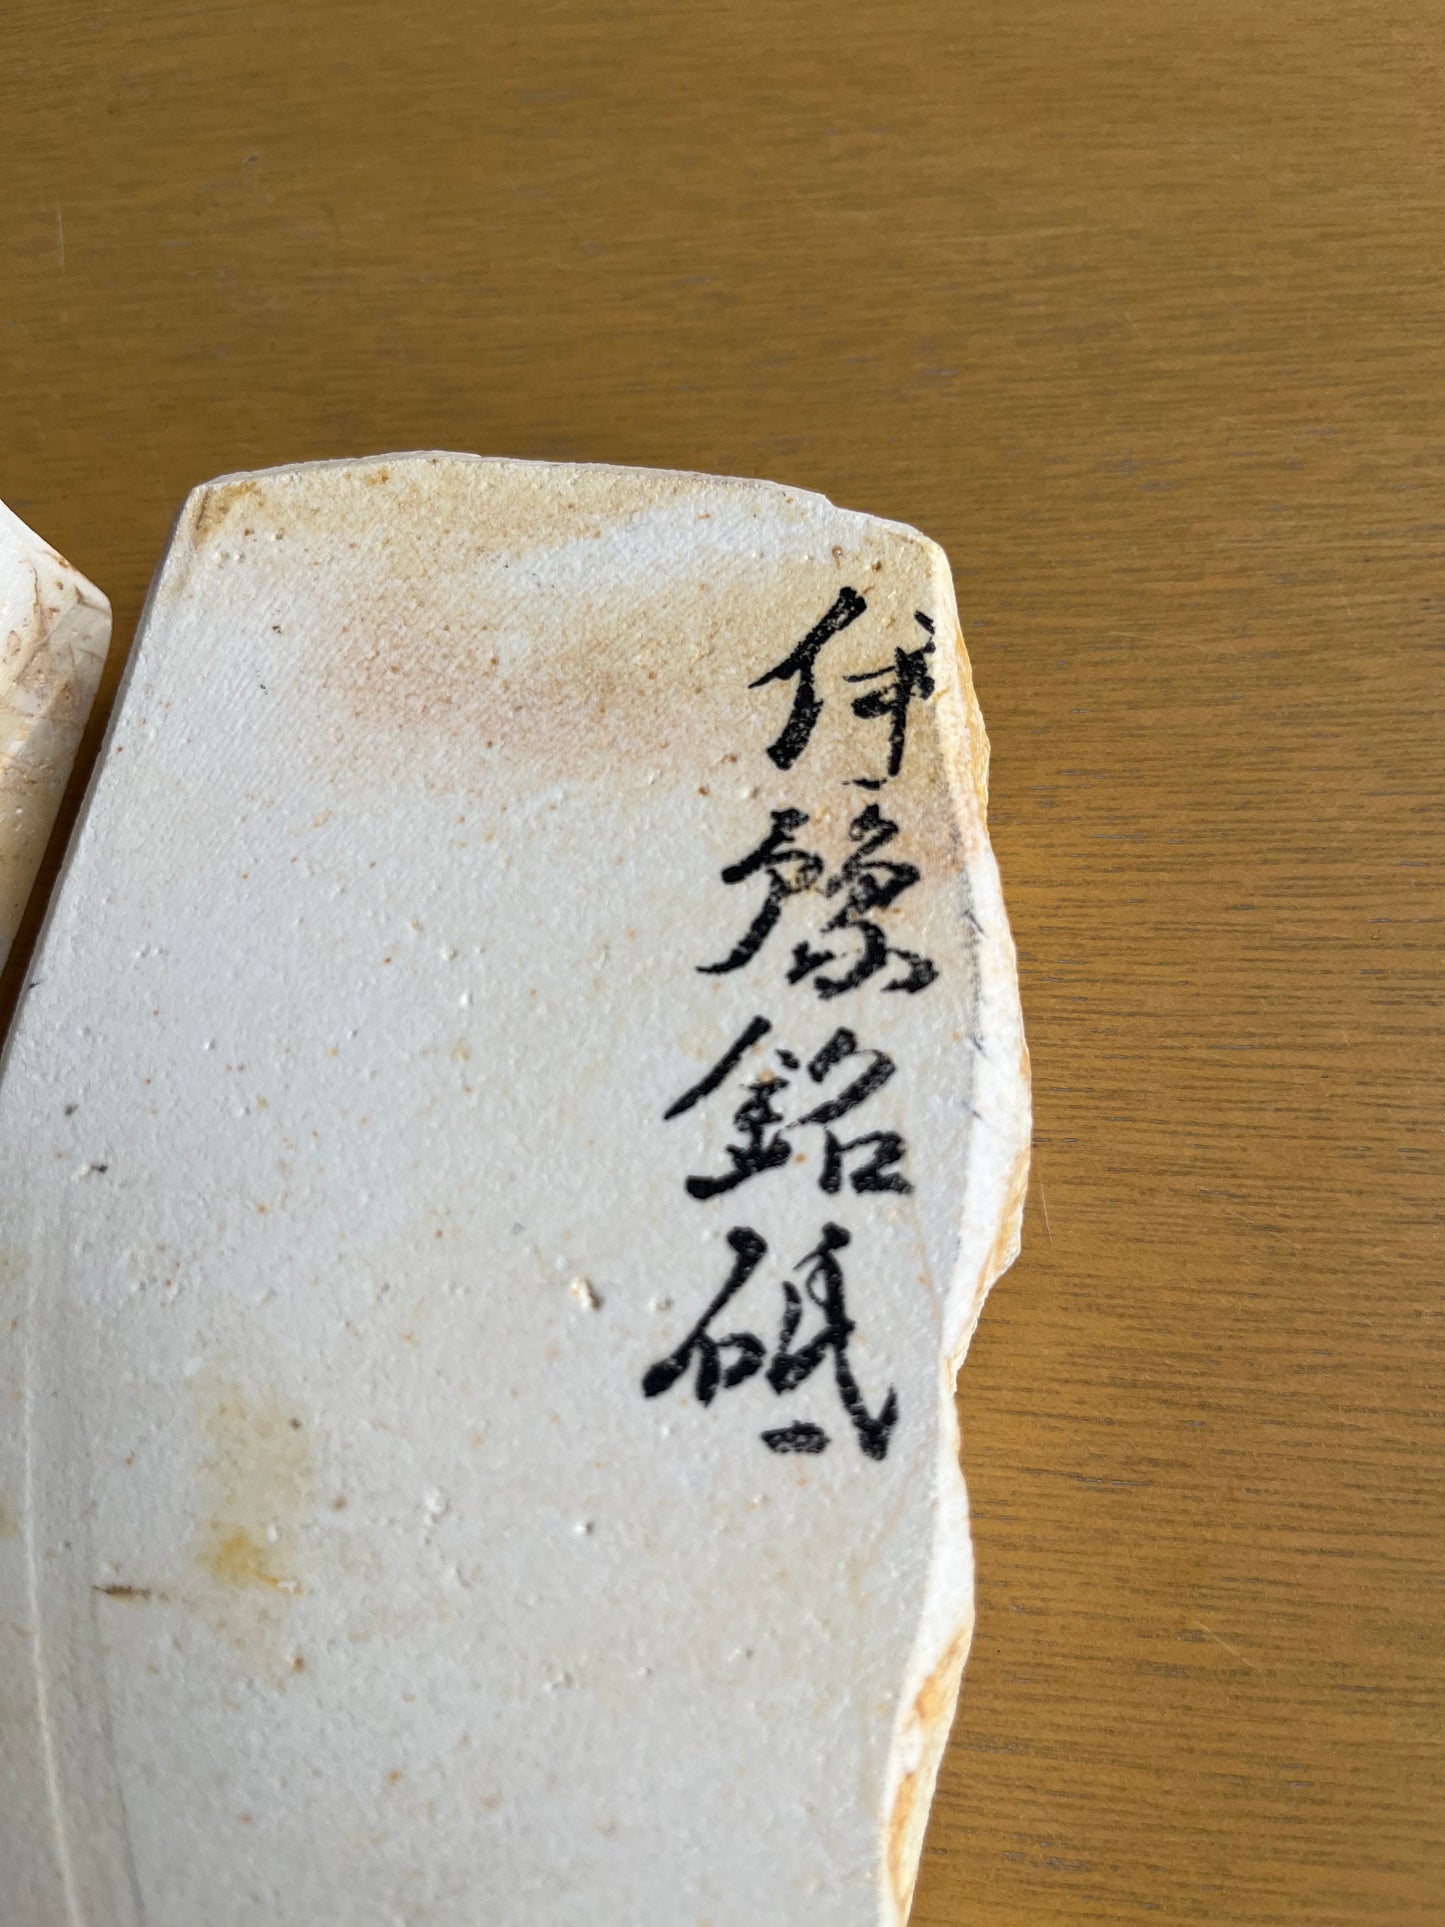 伊豫銘砥